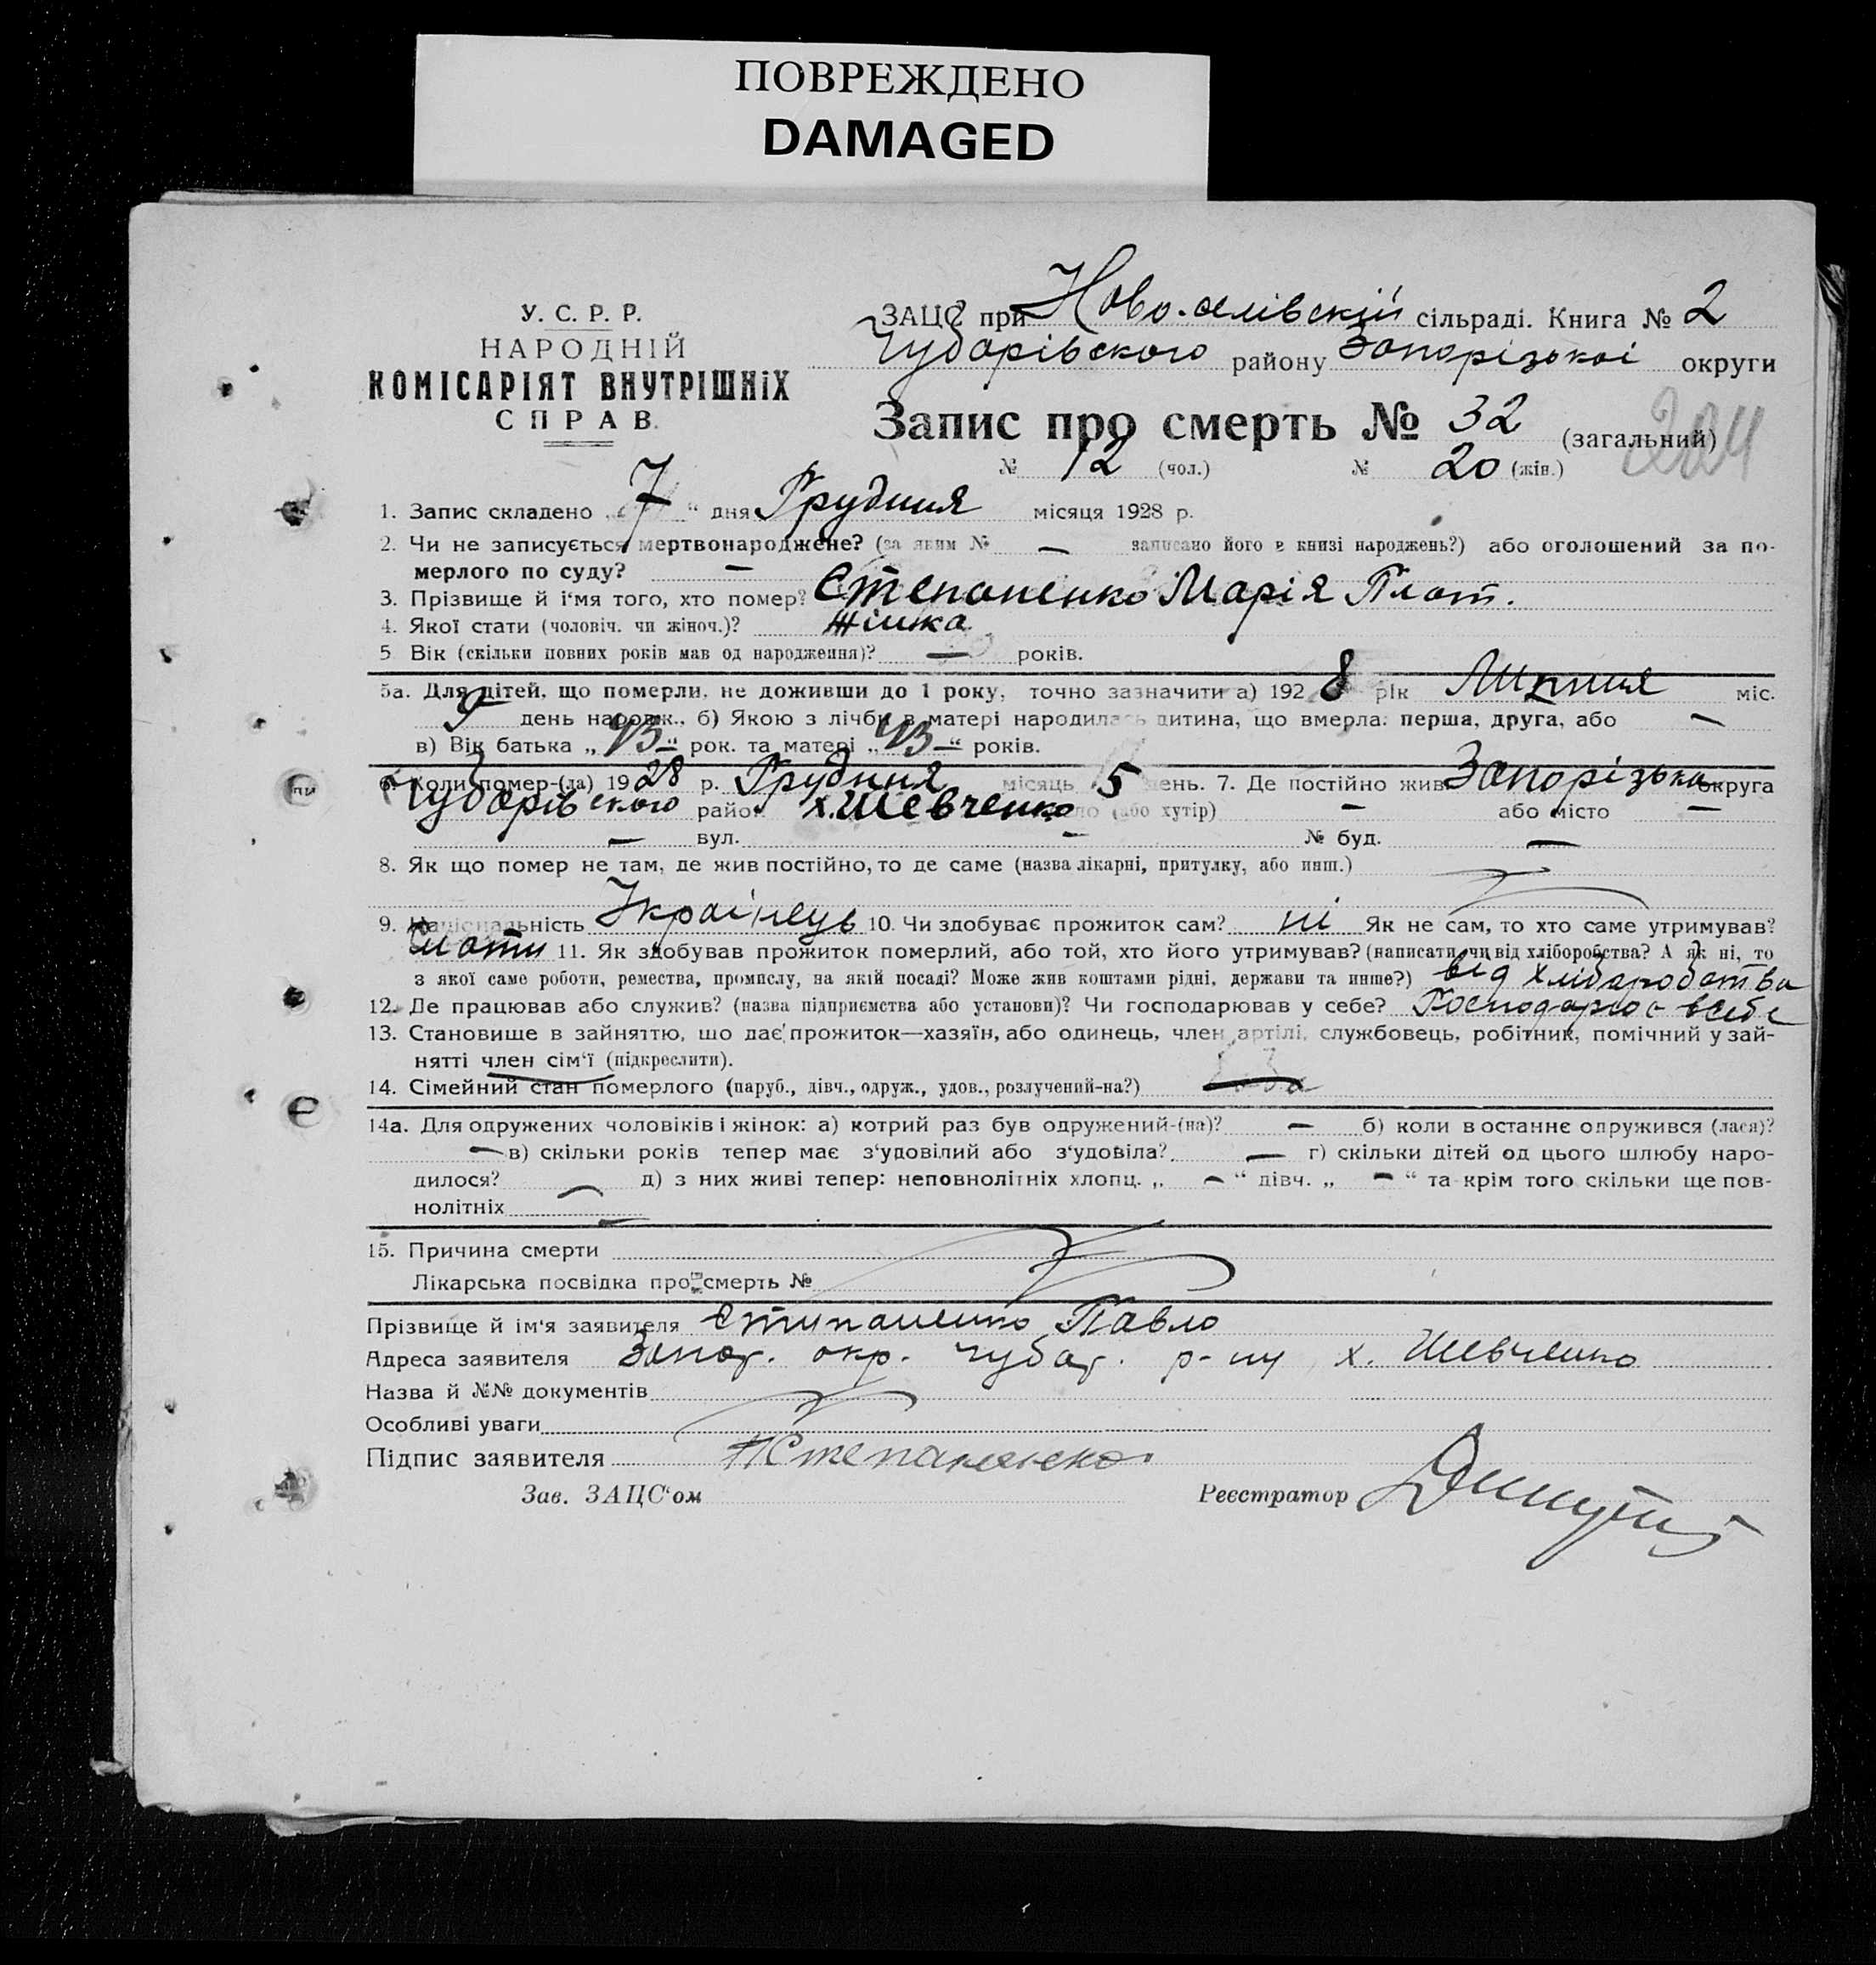 ПОВРЕЖДЕНО
DAMAGED
У. С. Р. Р.
НАРОДНІЙ
КОМІСАРІЯТ ВНУТРІШНІХ
СПРАВ.
ЗАЦС при Ново.олівскій сільраді. Книга № 2
Чубарівского району Запорізькоі округи
Запис про смерть № 32 (загальний) 204
№ 12 (чол.) № 20 (жін.)
1. Запис складено „ 7 “ дня Грудния місяця 1928 р.
2. Чи не записується мертвонароджене? (за яким № — записано його в книзі народжень?) або оголошений за по-
мерлого по суду? —
3. Прізвище й і'мя того, хто помер? Степоненко Марія Плат.
4. Якої стати (чоловіч. чи жіноч.)? Жінка
5 Вік (скільки повних років мав од народження)? — років.
5а. Для дітей, що померли, не доживши до 1 року, точно зазначити а) 192 8 рік Липния міс.
9 день народж., б) Якою з лічби в матері народилась дитина, що вмерла: перша, друга, або —
в) Вік батька „ 43 “ рок. та матері „ 43 “ років.
6. Коли помер-(ла) 19 28 р. Грудния місяць 5 день. 7. Де постійно жив Запорізька округа
Чубарівского район х. Шевченко село (або хутір) — або місто —
— вул. — № буд. —
8. Як що помер не там, де жив постійно, то де саме (назва лікарні, притулку, або инш.)
9. Національність Украінець 10. Чи здобуває прожиток сам? ні Як не сам, то хто саме утримував?
мати 11. Як здобував прожиток померлий, або той, хто його утримував? (написати, чи від хліборобства? А як ні, то
з якої саме роботи, ремества, промислу, на якій посаді? Може жив коштами рідні, держави та инше?) від хліборобства
12. Де працював або служив? (назва підприємства або установи)? Чи господарював у себе? Господарює всебе
13. Становище в зайняттю, що дає прожиток—хазяїн, або одинець, член артілі, службовець, робітник, помічний у зай-
нятті член сім'ї (підкреслити).
14. Сімейний стан померлого (паруб., дівч., одруж., удов., розлучений-на?)
14а. Для одружених чоловіків і жінок: а) котрий раз був одружений-(на)? — б) коли востаннє одружився (лася)?
— в) скільки років тепер має з'удовілий або з'удовіла? — г) скільки дітей од цього шлюбу наро-
дилося? — д) з них живі тепер: неповнолітніх хлопц. „ — “ дівч. „ — “ та крім того скільки ще пов-
нолітніх —
15. Причина смерти
Лікарська посвідка про смерть №
Прізвище й ім'я заявителя Стипаненко Павло
Адреса заявителя Запор. окр. Чубар. р-ну х. Шевченко
Назва й №№ документів
Особливі уваги
Підпис заявителя ПСтепаненко
Зав. ЗАЦС'ом Реєстратор